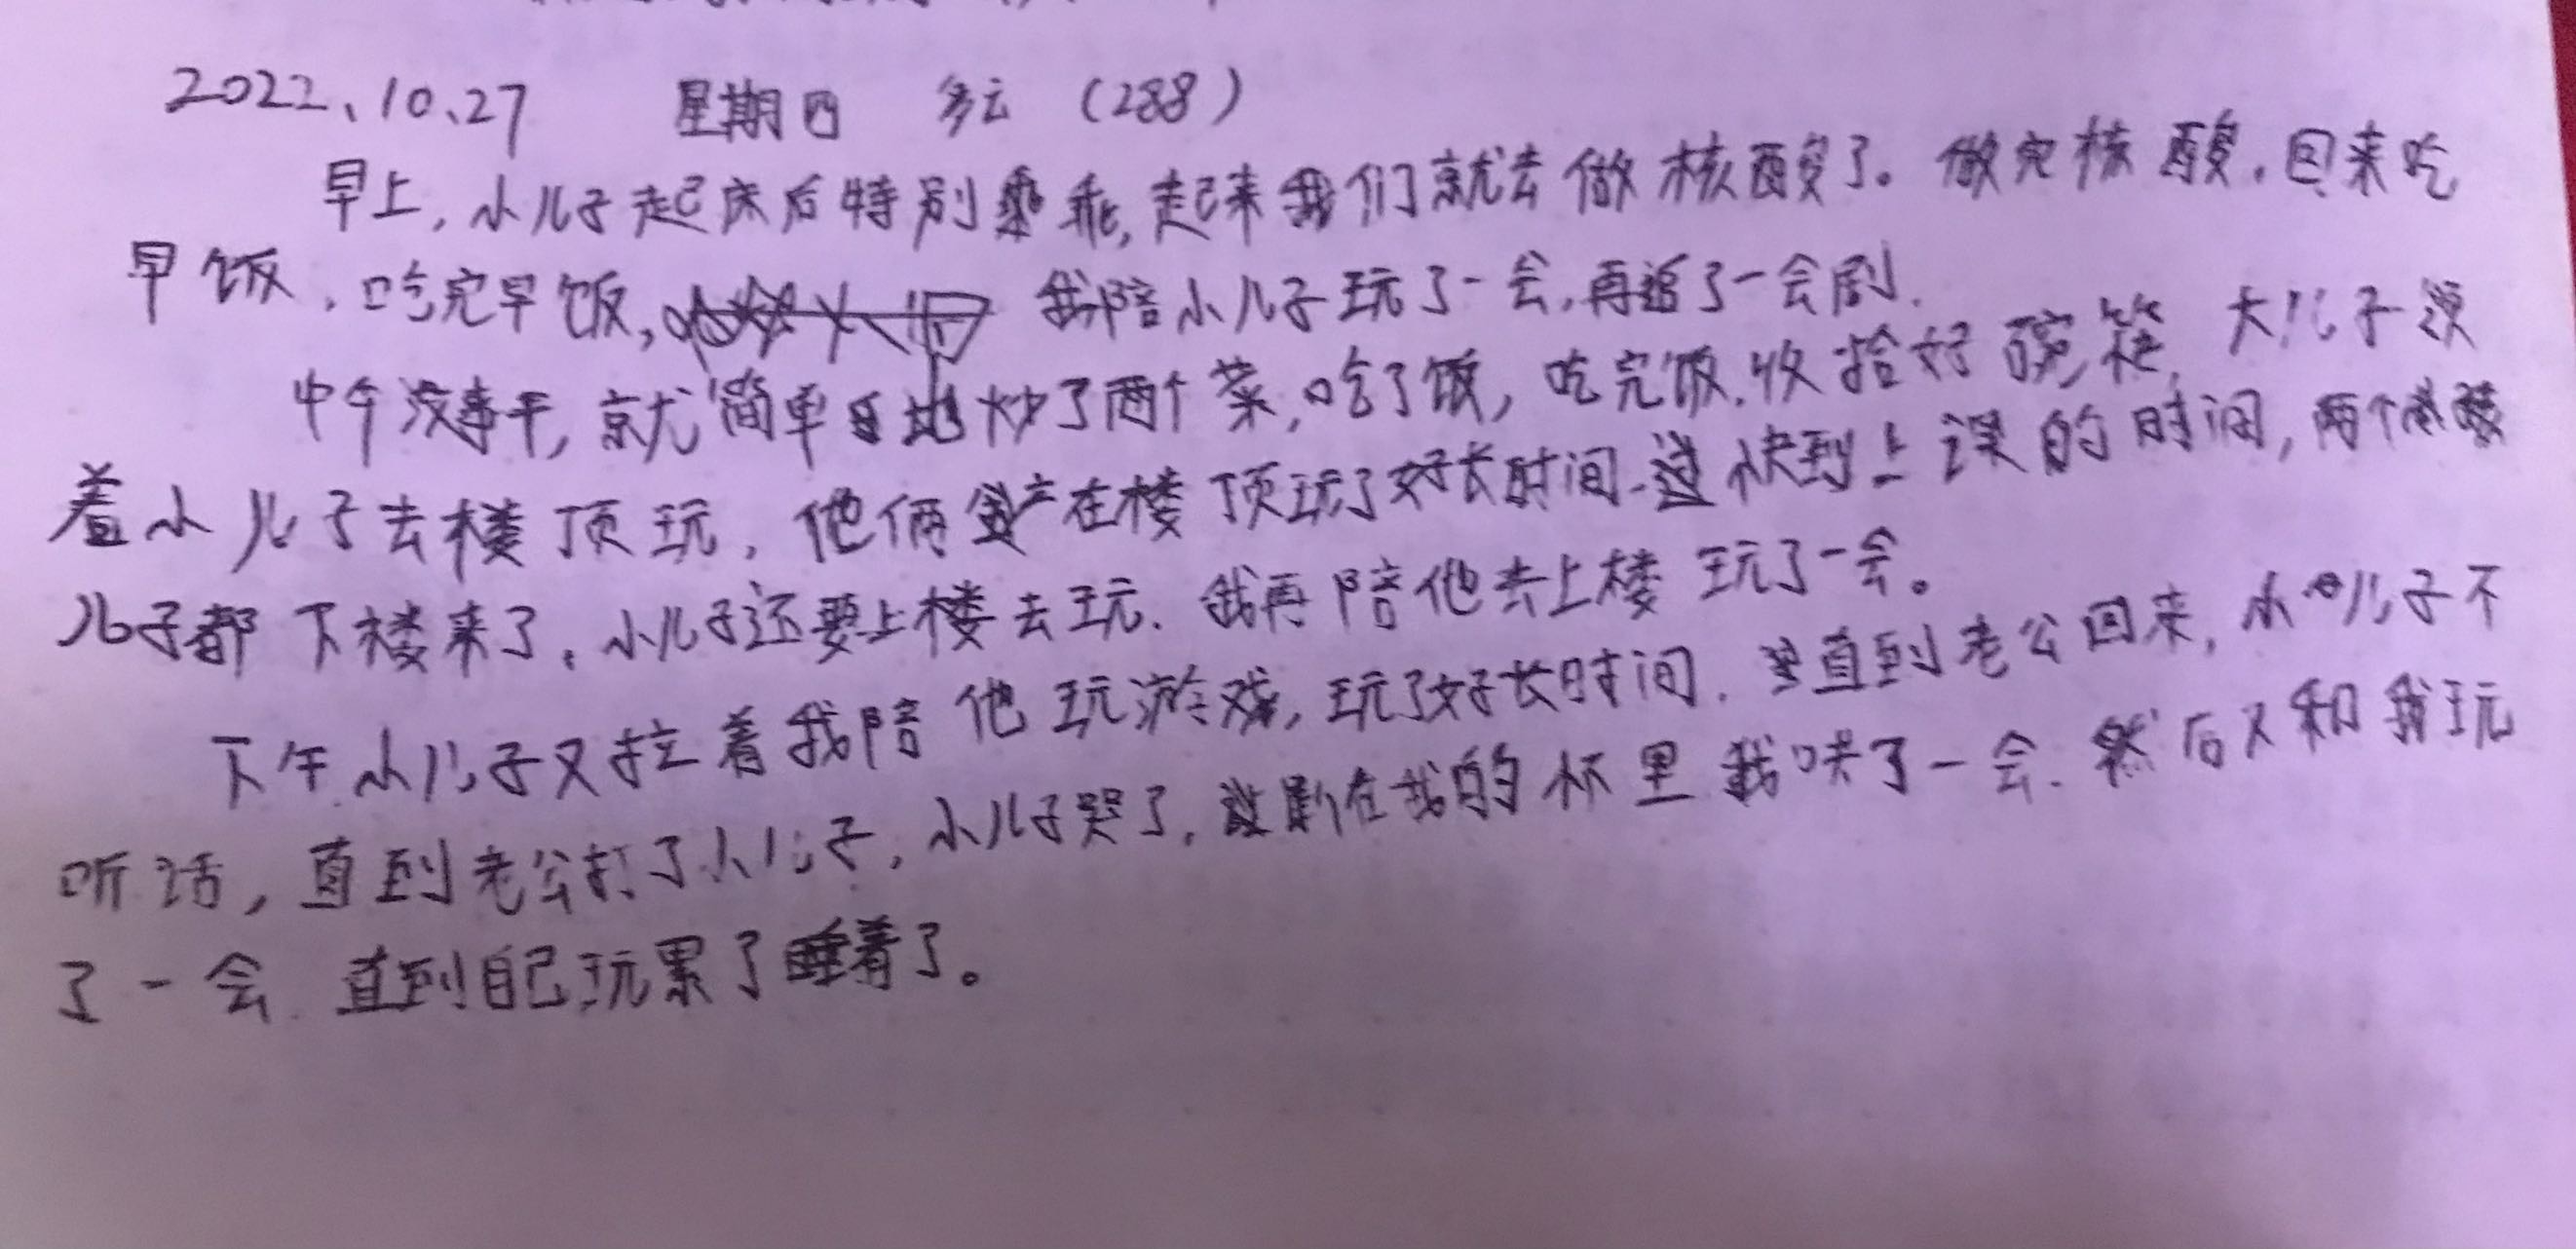 2022、10、27 星期四 多云 (288)
早上,小儿子起床后特别乖乖,起来我们就去做核酸了。做完核酸,回来吃
早饭,吃完早饭, 我陪小儿子玩了一会,再追了一会剧.
中午没事干,就简单地炒了两个菜,吃了饭,吃完饭,收拾好碗筷,大儿子领
着小儿子去楼顶玩,他俩在楼顶玩了好长时间.快到上课的时间,两个
儿子都下楼来了,小儿子还要上楼去玩.我再陪他去上楼玩了一会。
下午小儿子又拉着我陪他玩游戏,玩了好长时间.直到老公回来,小儿子不
听话,直到老公打了小儿子,小儿子哭了,在我的怀里我哄了一会.然后又和我玩
了一会.直到自己玩累了睡着了。